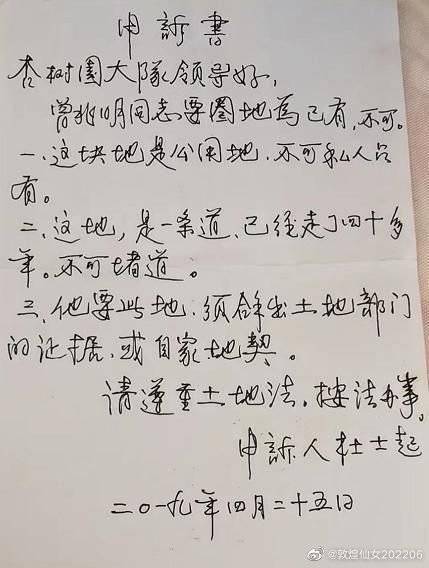 申訴書
杏树園大隊领导好,
曾明同志要圈地為己有,不可。
一、这块地是公用地、不可私人占
有。
二、这地,是一条道、已经走了四十多
年。不可堵道。
三、他要此地、须拿出土地部门
的证据、或自家地契。
请遵重土地法。按法办事。
申訴人杜士起
二〇一九年四月二十五日
@敦煌仙女202206